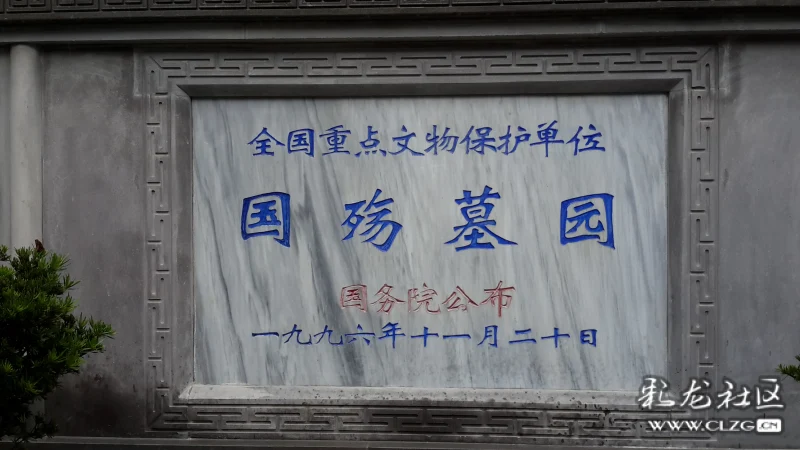 全国重点文物保护单位
国殇墓园
国务院公布
一九九六年十一月二十日
彩龙社区
WWW.CLZG.CN